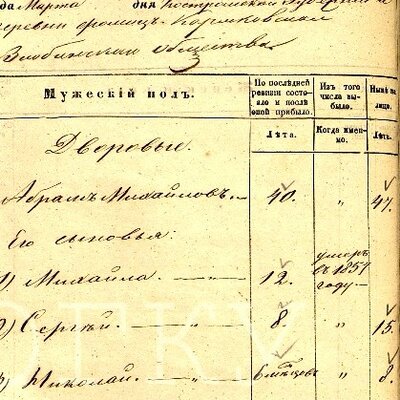 да Марта дня Костромской Губерніи
деревни
общества
Мужескій полъ.
По послѣдней ревизіи состояло и послѣ оной прибыло.
Изъ того числа выбыло.
Нынѣ на лицо.
Лѣта.
Когда именно.
Лѣтъ.
Дворовые.
Абрамъ Михайловъ.— 40. „ 47.
Его сыновья:
1) Михайла. — „ — 12. умеръ въ 1857 году —
2) Сергѣй. — „ 8. „ 15.
3) Николай. — „ 6 мѣсцовъ „ 8.